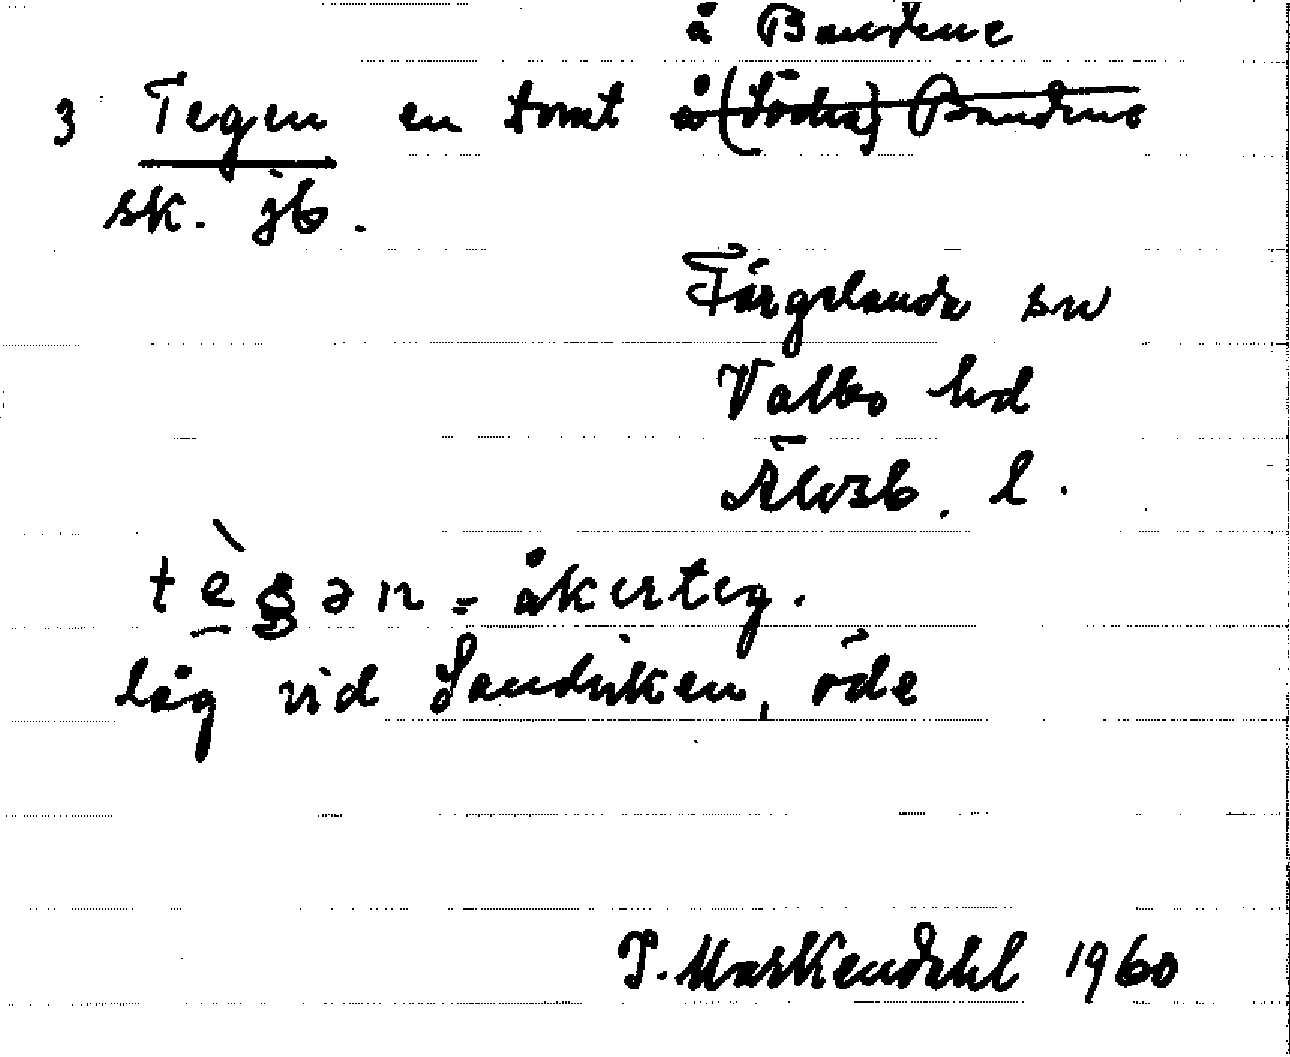 å Baudene
3 Tegen en tomt å (Södra) Baudene
sk. jb.
Färgelanda sn
Valbo hd
Älvsb. l.
tègən = åkerteg.
låg vid Sandviken, öde
P. Markendahl 1960